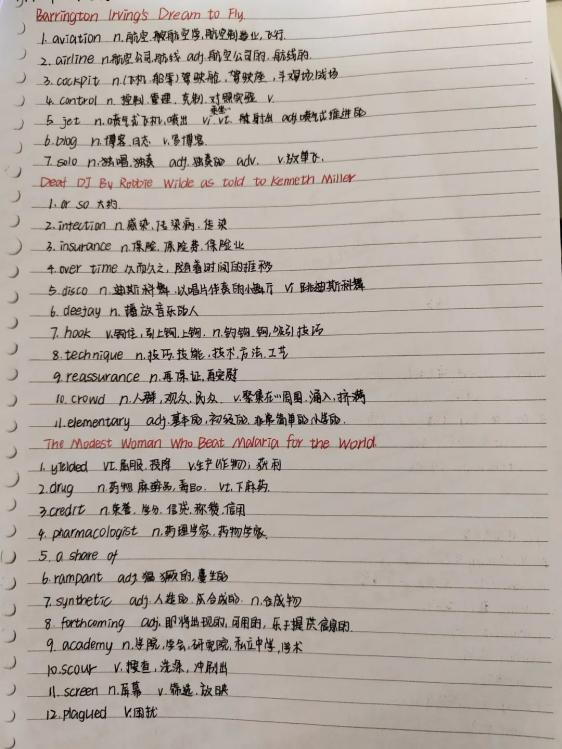 Barrington Irving's Dream to Fly
1. aviation n.航空.航空学.航空制造业,飞行.
2. airline n.航空公司,航线 adj.航空公司的.航线的.
3. cockpit n.(飞机,船等)驾驶舱,驾驶座,斗鸡场,战场
4. control n.控制.管理.克制.对照实验 v.
5. jet n.喷气式飞机,喷出 vi. vt. 射出 adj.喷气式推进的
6. blog n.博客.日志 v.写博客.
7. solo n.独唱.独奏 adj.独奏的 adv. v.放单飞.
Deaf DJ By Robbie Wilde as told to Kenneth Miller
1. or so 大约.
2. infection n.感染,传染病,传染
3. insurance n.保险,保险费,保险业
4. over time 久而久之,随着时间的推移
5. disco n.迪斯科舞.以唱片伴奏的小舞厅 vi 跳迪斯科舞
6. deejay n.播放音乐的人
7. hook v.钩住,引上钩,上钩. n.钓钩.钩,吸引技巧
8. technique n.技巧.技能,技术,方法,工艺
9. reassurance n.再保证,再安慰
10. crowd n.人群,观众,民众 v.聚集在…周围,涌入,挤满
11. elementary adj.基本的,初级的.非常简单的,小学的.
The Modest Woman Who Beat Malaria for the World.
1. yielded vt.屈服.投降 v.生产(作物);获利
2. drug n.药物.麻醉品,毒品. vt.下麻药.
3. credit n.荣誉.学分.信贷,称赞,信用
4. pharmacologist n.药理学家,药物学家.
5. a share of
6. rampant adj.猖獗的,蔓生的
7. synthetic adj.人造的.合成的. n.合成物
8. forthcoming adj.即将出现的,可用的,乐于提供信息的.
9. academy n.学院,学会,研究院,私立中学,学术
10. scour v.搜查,洗涤,冲刷出
11. screen n.屏幕 v.筛选,放映
12. plagued v.困扰